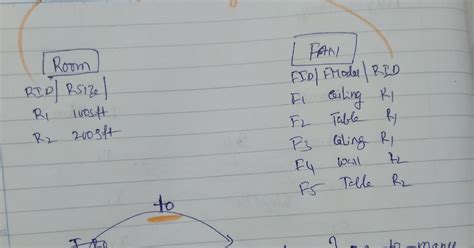 Room
RID | RSize |
R1 100sft
R2 200sft
FAN
FID | FModel | RID
F1 Ceiling R1
F2 Table R1
F3 Ceiling R1
F4 Wall R2
F5 Table R2
to
to-many